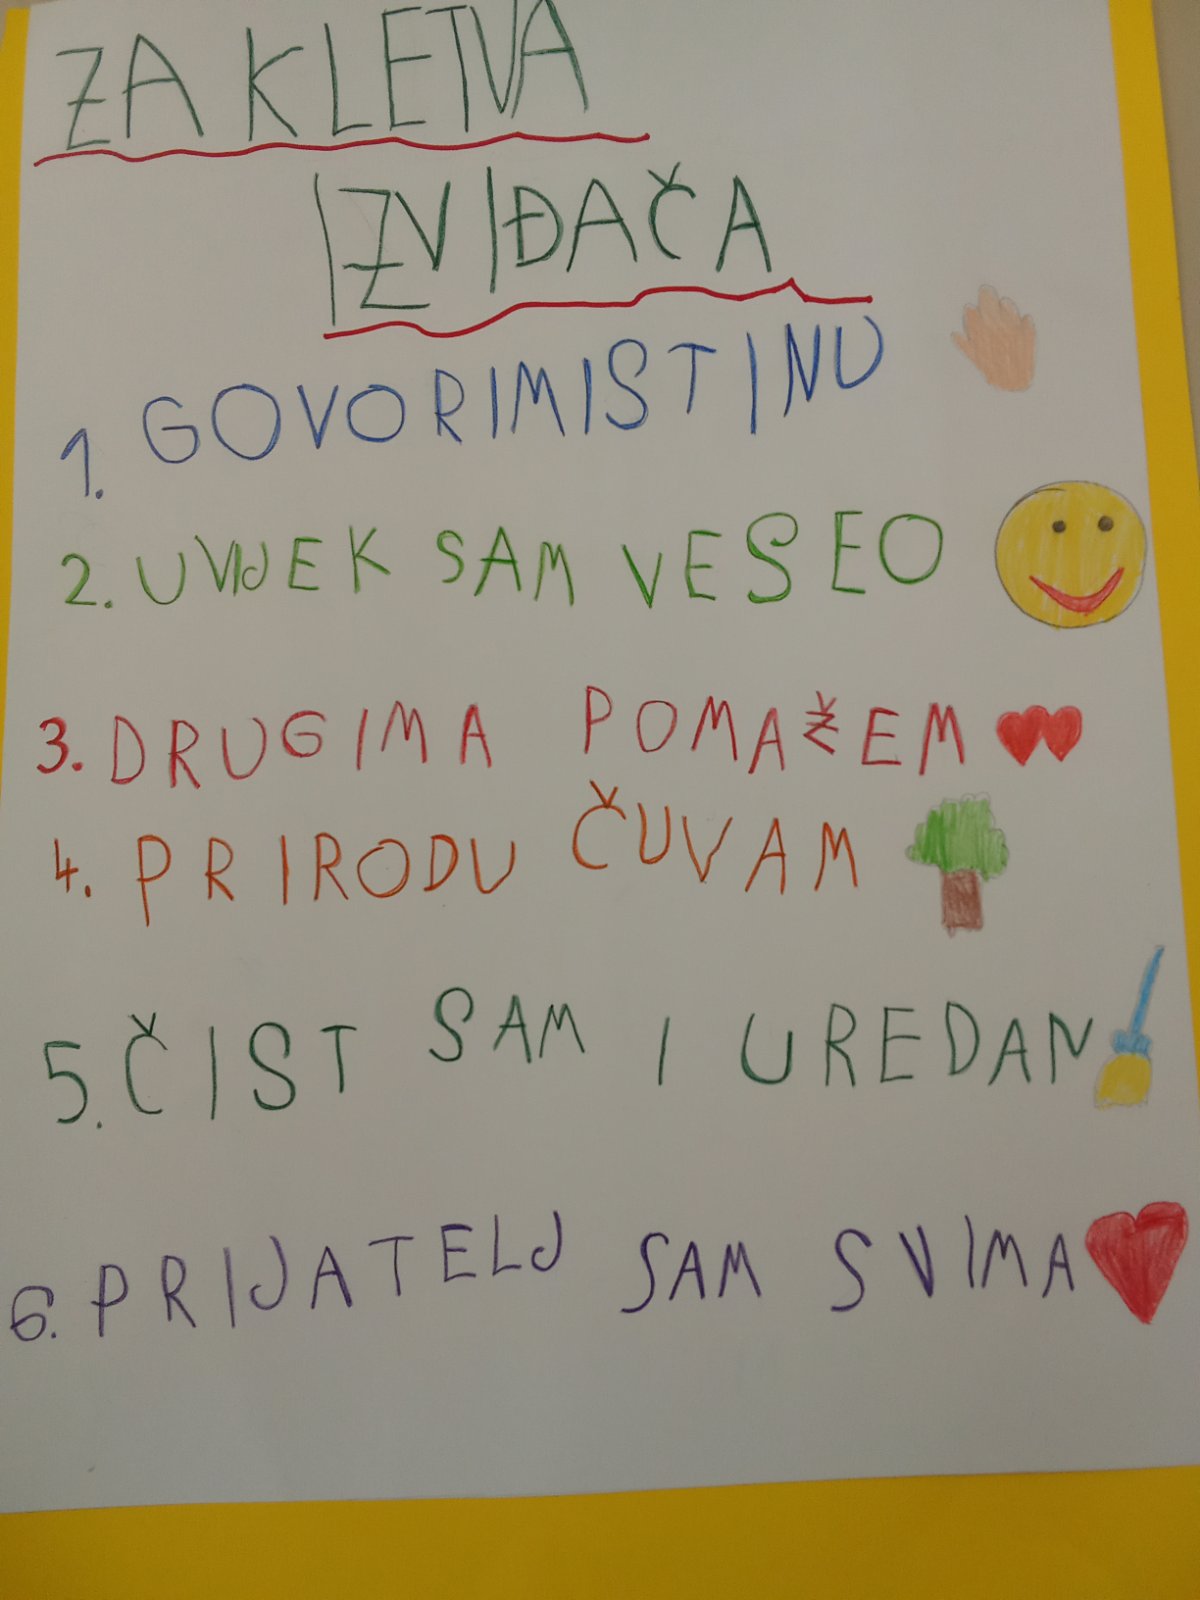 ZAKLETVA
IZVIĐAČA
1. GOVORIM ISTINU
2. UVIJEK SAM VESEO
3. DRUGIMA POMAŽEM
4. PRIRODU ČUVAM
5. ČIST SAM I UREDAN
6. PRIJATELJ SAM SVIMA